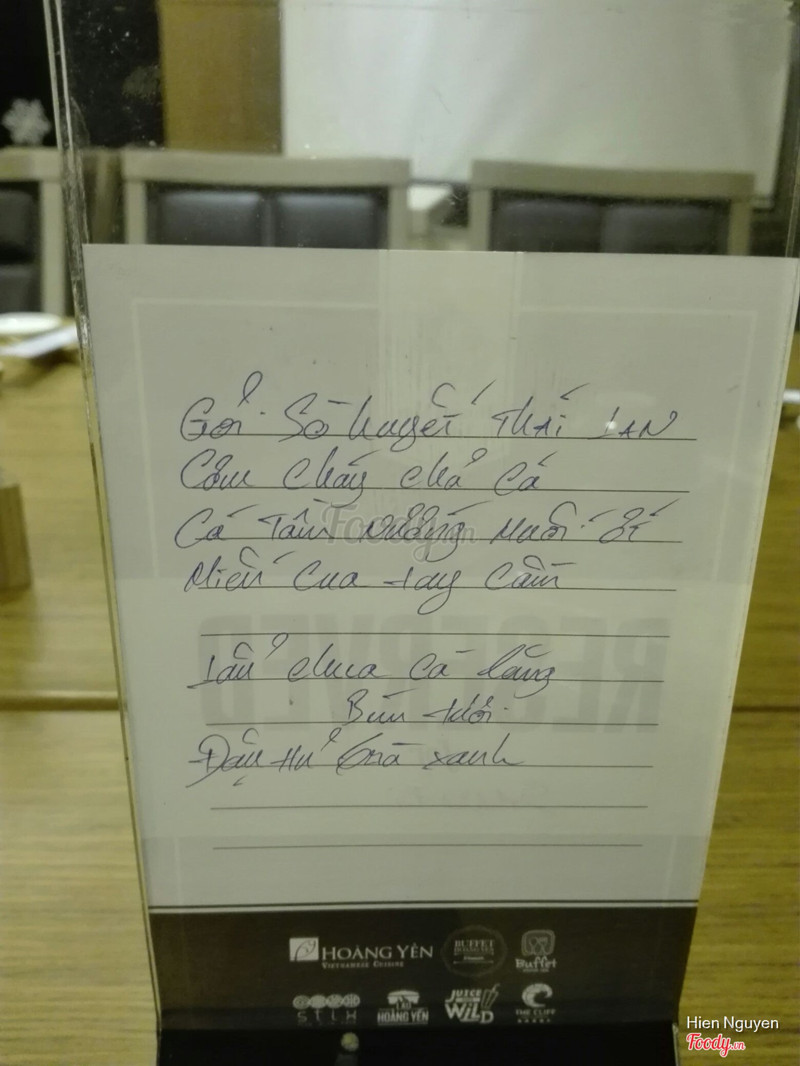 Gỏi Sò huyết THÁI LAN
Cơm cháy chả cá
Cá Tầm Nướng Muối ớt
Miến Cua tay cầm
Lẩu chua cá lăng
Bún tươi
Đậu Hủ trà xanh
Foody.vn
RESERVED
HOÀNG YẾN
VIETNAMESE CUISINE
BUFFET
Buffet
LẨU
HOÀNG YẾN
JUICE
WiLD
THE CLIFF
Hien Nguyen
Foody.vn